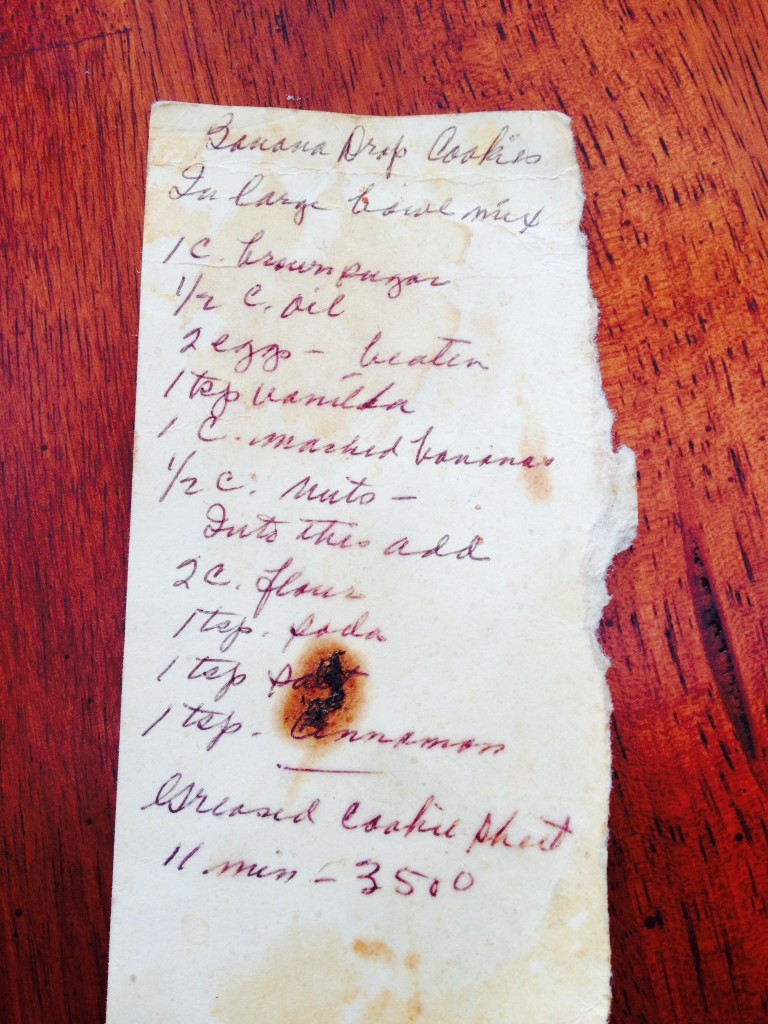 Banana Drop Cookies
In large bowl mix
1 C. brown sugar
1/2 C. oil
2 eggs - beaten
1 tsp vanilla
1 C. mashed bananas
1/2 C. nuts -
Into this add
2 C. flour
1 tsp. soda
1 tsp salt
1 tsp. Cinnamon
Greased Cookie sheet
11 min - 350°